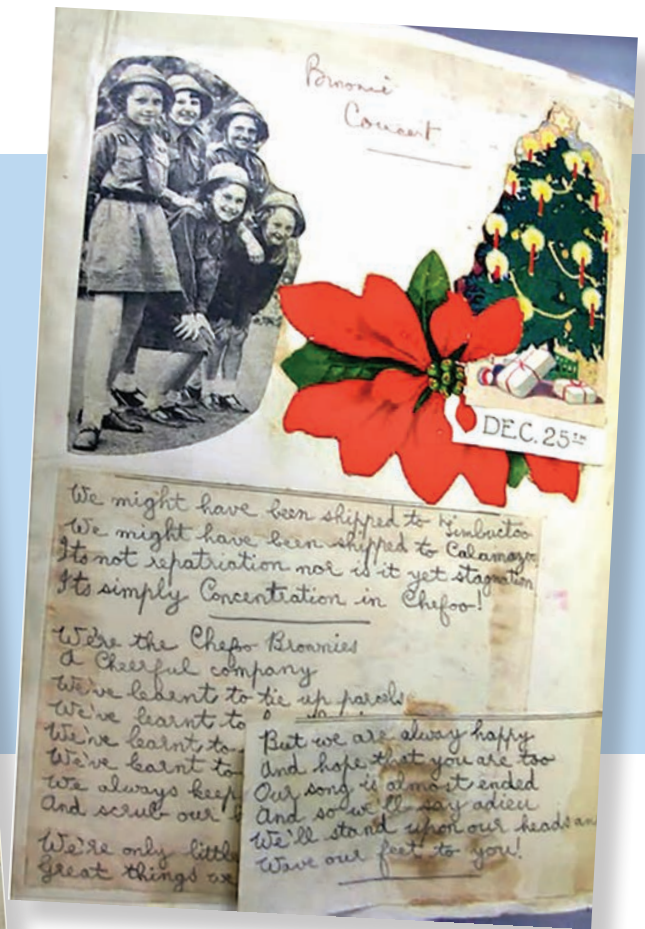 Brownie
Concert
DEC. 25TH
We might have been shipped to Timbuctoo
We might have been shipped to Calamazoo
Its not repatriation nor is it yet stagnation
Its simply Concentration in Chefoo!
We're the Chefoo Brownies
A Cheerful company
We've learnt to tie up parcels
We've learnt to
We've learnt to
We've learnt to
We always keep
And scrub our
We're only little
Great things we
But we are alway happy
And hope that you are too
Our song is almost ended
And so we'll say adieu
We'll stand upon our heads an
Wave our feet to you!